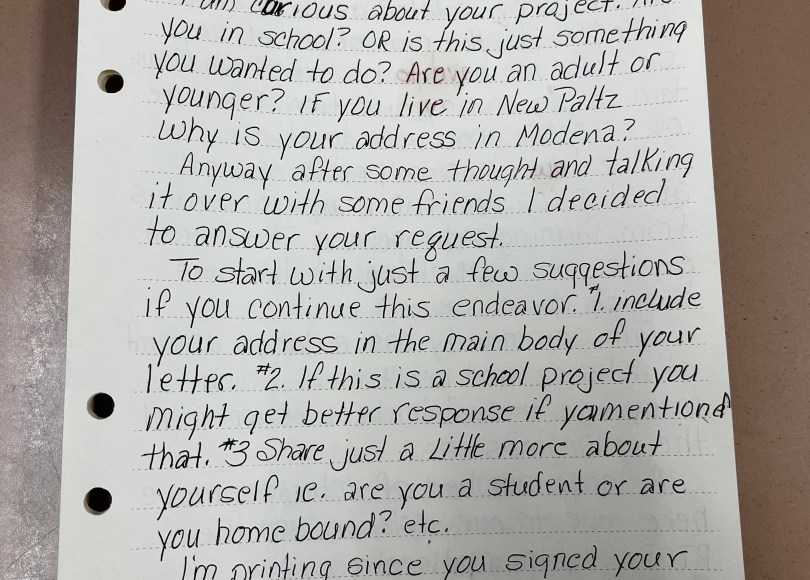 I am curious about your project. Are
you in school? OR is this just something
you wanted to do? Are you an adult or
younger? IF you live in New Paltz
why is your address in Modena?
Anyway after some thought and talking
it over with some friends I decided
to answer your request.
To start with just a few suggestions
if you continue this endeavor. #1. include
your address in the main body of your
letter. #2. If this is a school project you
might get better response if you mentiond
that. #3 Share just a Little more about
yourself ie. are you a student or are
you home bound? etc.
I'm printing since you signed your